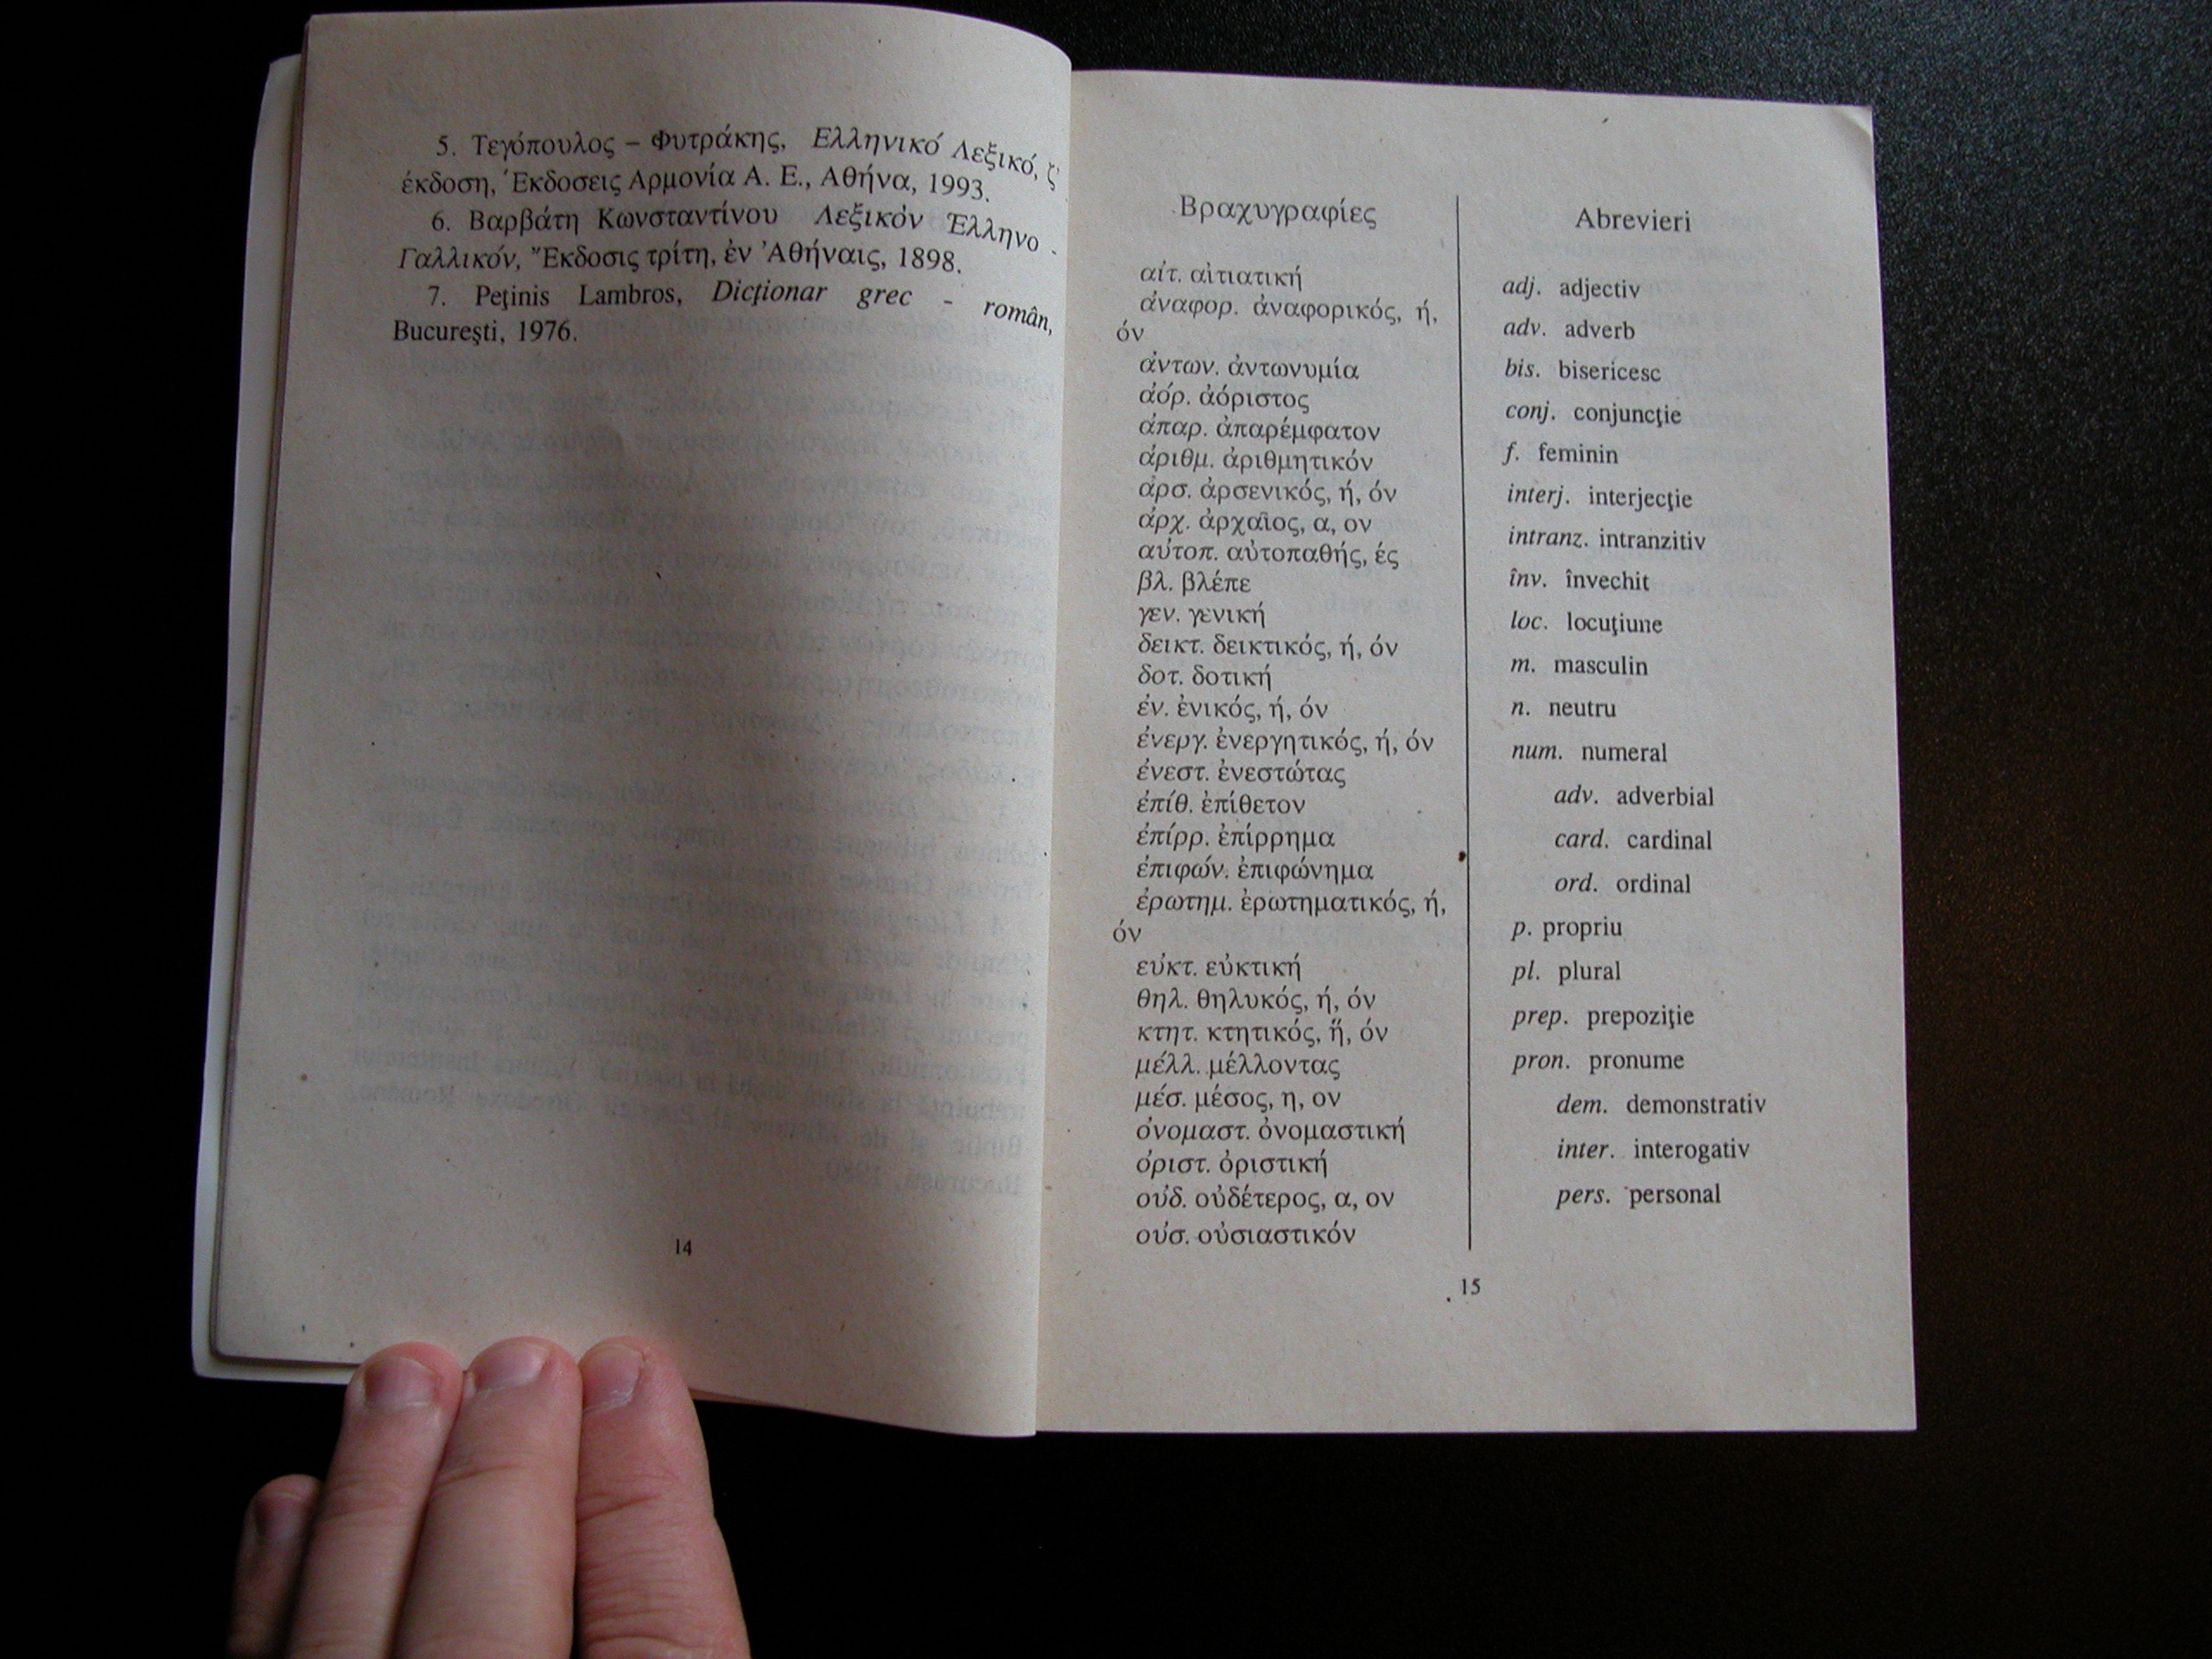 5. Τεγόπουλος – Φυτράκης, Ελληνικό Λεξικό, ζ'
έκδοση, Έκδοσεις Αρμονία Α. Ε., Αθήνα, 1993.
6. Βαρβάτη Κωνσταντίνου Λεξικὸν Ἑλληνο -
Γαλλικόν, Ἔκδοσις τρίτη, ἐν Ἀθήναις, 1898.
7. Peţinis Lambros, Dicţionar grec - român,
Bucureşti, 1976.
14
Βραχυγραφίες
αἰτ. αἰτιατική
ἀναφορ. ἀναφορικός, ή,
όν
ἀντων. ἀντωνυμία
ἀόρ. ἀόριστος
ἀπαρ. ἀπαρέμφατον
ἀριθμ. ἀριθμητικόν
ἀρσ. ἀρσενικός, ή, όν
ἀρχ. ἀρχαῖος, α, ον
αὐτοπ. αὐτοπαθής, ές
βλ. βλέπε
γεν. γενική
δεικτ. δεικτικός, ή, όν
δοτ. δοτική
ἐν. ἐνικός, ή, όν
ἐνεργ. ἐνεργητικός, ή, όν
ἐνεστ. ἐνεστώτας
ἐπίθ. ἐπίθετον
ἐπίρρ. ἐπίρρημα
ἐπιφών. ἐπιφώνημα
ἐρωτημ. ἐρωτηματικός, ή,
όν
εὐκτ. εὐκτική
θηλ. θηλυκός, ή, όν
κτητ. κτητικός, ἥ, όν
μέλλ. μέλλοντας
μέσ. μέσος, η, ον
ὀνομαστ. ὀνομαστική
ὁριστ. ὁριστική
οὐδ. οὐδέτερος, α, ον
οὐσ. οὐσιαστικόν
Abrevieri
adj. adjectiv
adv. adverb
bis. bisericesc
conj. conjuncţie
f. feminin
interj. interjecţie
intranz. intranzitiv
înv. învechit
loc. locuţiune
m. masculin
n. neutru
num. numeral
adv. adverbial
card. cardinal
ord. ordinal
p. propriu
pl. plural
prep. prepoziţie
pron. pronume
dem. demonstrativ
inter. interogativ
pers. personal
15